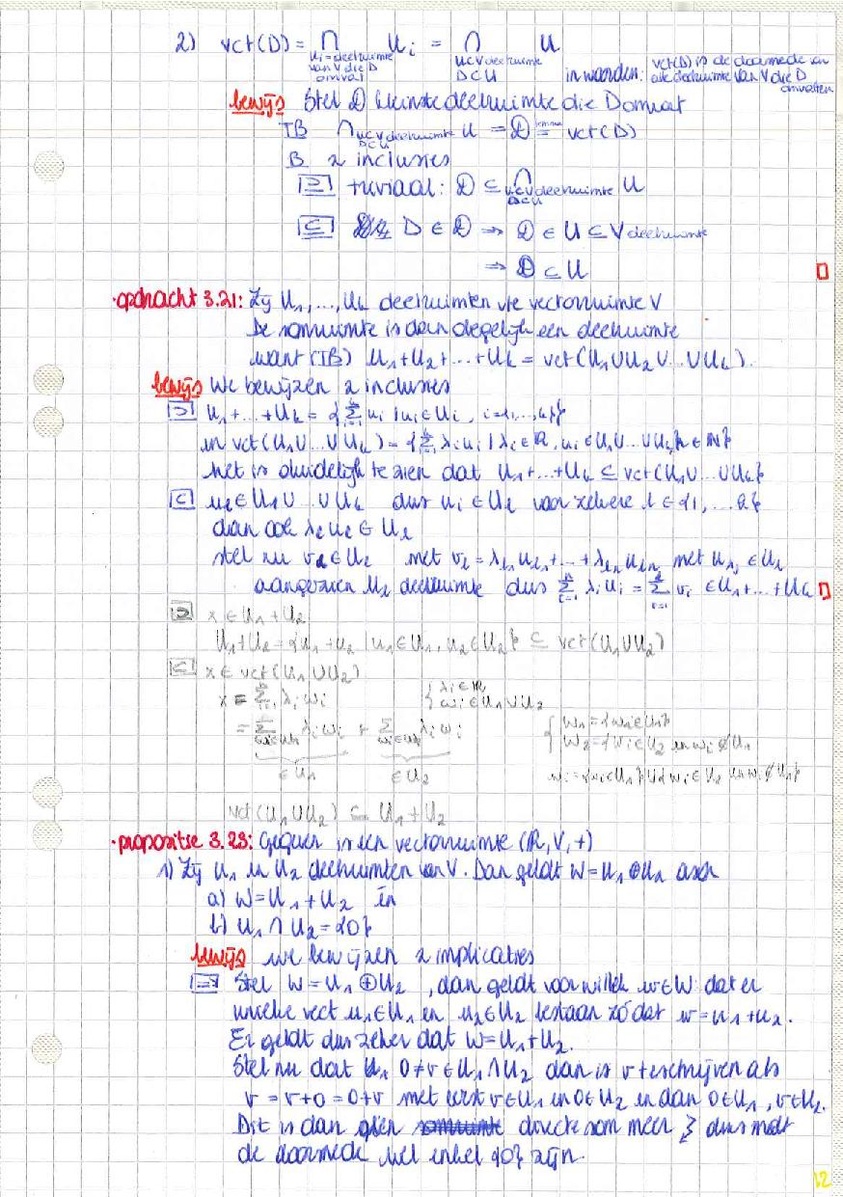 2) vct(D) = ∩ Ui = ∩ U
Ui = deelruimte van V die D omvat
U⊂V deelruimte D⊂U
in woorden: vct(D) is de doorsnede van alle deelruimte van V die D omvatten
bewijs Stel 𝔻 kleinste deelruimte die D omvat
TB ∩ U⊂V deelruimte D⊂U U = 𝔻 = vct(D)
B 2 inclusies
⊇ triviaal: 𝔻 ⊆ ∩ U⊂V deelruimte D⊂U U
⊂ D ∈ 𝔻 → 𝔻 ∈ U ⊆ V deelruimte
→ 𝔻 ⊂ U
· opdracht 3.21: Zij U1, ..., Uk deelruimten v/e vectorruimte V
De somruimte is dan degelijk een deelruimte
want (TB) U1+U2+...+Uk = vct(U1∪U2∪...∪Uk).
bewijs We bewijzen 2 inclusies
⊃ U1+...+Uk = {Σ ui | ui∈Ui, i=1,...,k}
en vct(U1∪...∪Uk) = {Σ λi ui | λi∈ℝ, ui∈U1∪...∪Uk, k∈ℕ}
het is duidelijk te zien dat U1+...+Uk ⊆ vct(U1∪...∪Uk}
⊂ uℓ∈U1∪...∪Uk dus ui∈Uℓ voor zekere ℓ∈{1,...,k}
dan ook λℓuℓ ∈ Uℓ
stel nu vℓ∈Uℓ met vℓ = λℓ1uℓ1+...+λℓnuℓn met uλj∈Uℓ
aangezien Uℓ deelruimte dus Σ λiui = Σ vi ∈ U1+...+Uk
⊃ x ∈ U1+U2
U1+U2 = {u1+u2 | u1∈U1, u2∈U2} ⊆ vct(U1∪U2)
⊂ x ∈ vct(U1∪U2)
x = Σ λiwi { λi∈ℝ wi∈U1∪U2
= Σ λiwi + Σ λiwi { W1={wi∈U1} W2={wi∈U2 en wi∉U1
∈U1 ∈U2 wi={wi∈U1}∪{wi∈U2 en wi∉U1}
vct(U1∪U2) ⊆ U1+U2
· propositie 3.23: Gegeven is een vectorruimte (ℝ,V,+)
1) Zij U1 en U2 deelruimten van V. Dan geldt W=U1⊕U2 asa
a) W=U1+U2 én
b) U1∩U2={0}
bewijs we bewijzen 2 implicaties
⇒ Stel W=U1⊕U2, dan geldt voor willek w∈W dat er
unieke vect u1∈U1 en u2∈U2 bestaan zódat w=u1+u2.
Er geldt dus zeker dat W=U1+U2.
Stel nu dat 0≠v∈U1∩U2 dan is v te schrijven als
v = v+0 = 0+v met eerst v∈U1 en 0∈U2 en dan 0∈U1, v∈U2.
Dit is dan géén directe som meer ↯ dus moet
de doorsnede wel enkel {0} zijn.
12